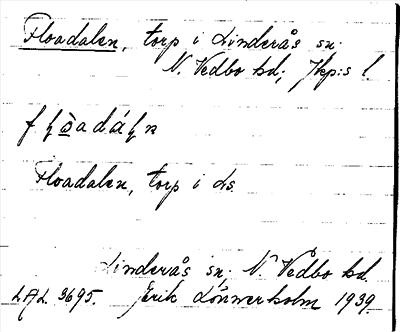 Floadalen, torp i Linderås sn.
N. Vedbo hd; Jkp:s l.
Floadalen, torp i Ls.
Linderås sn; N. Vedbo hd.
LAL 3695. Erik Lönnerholm 1939